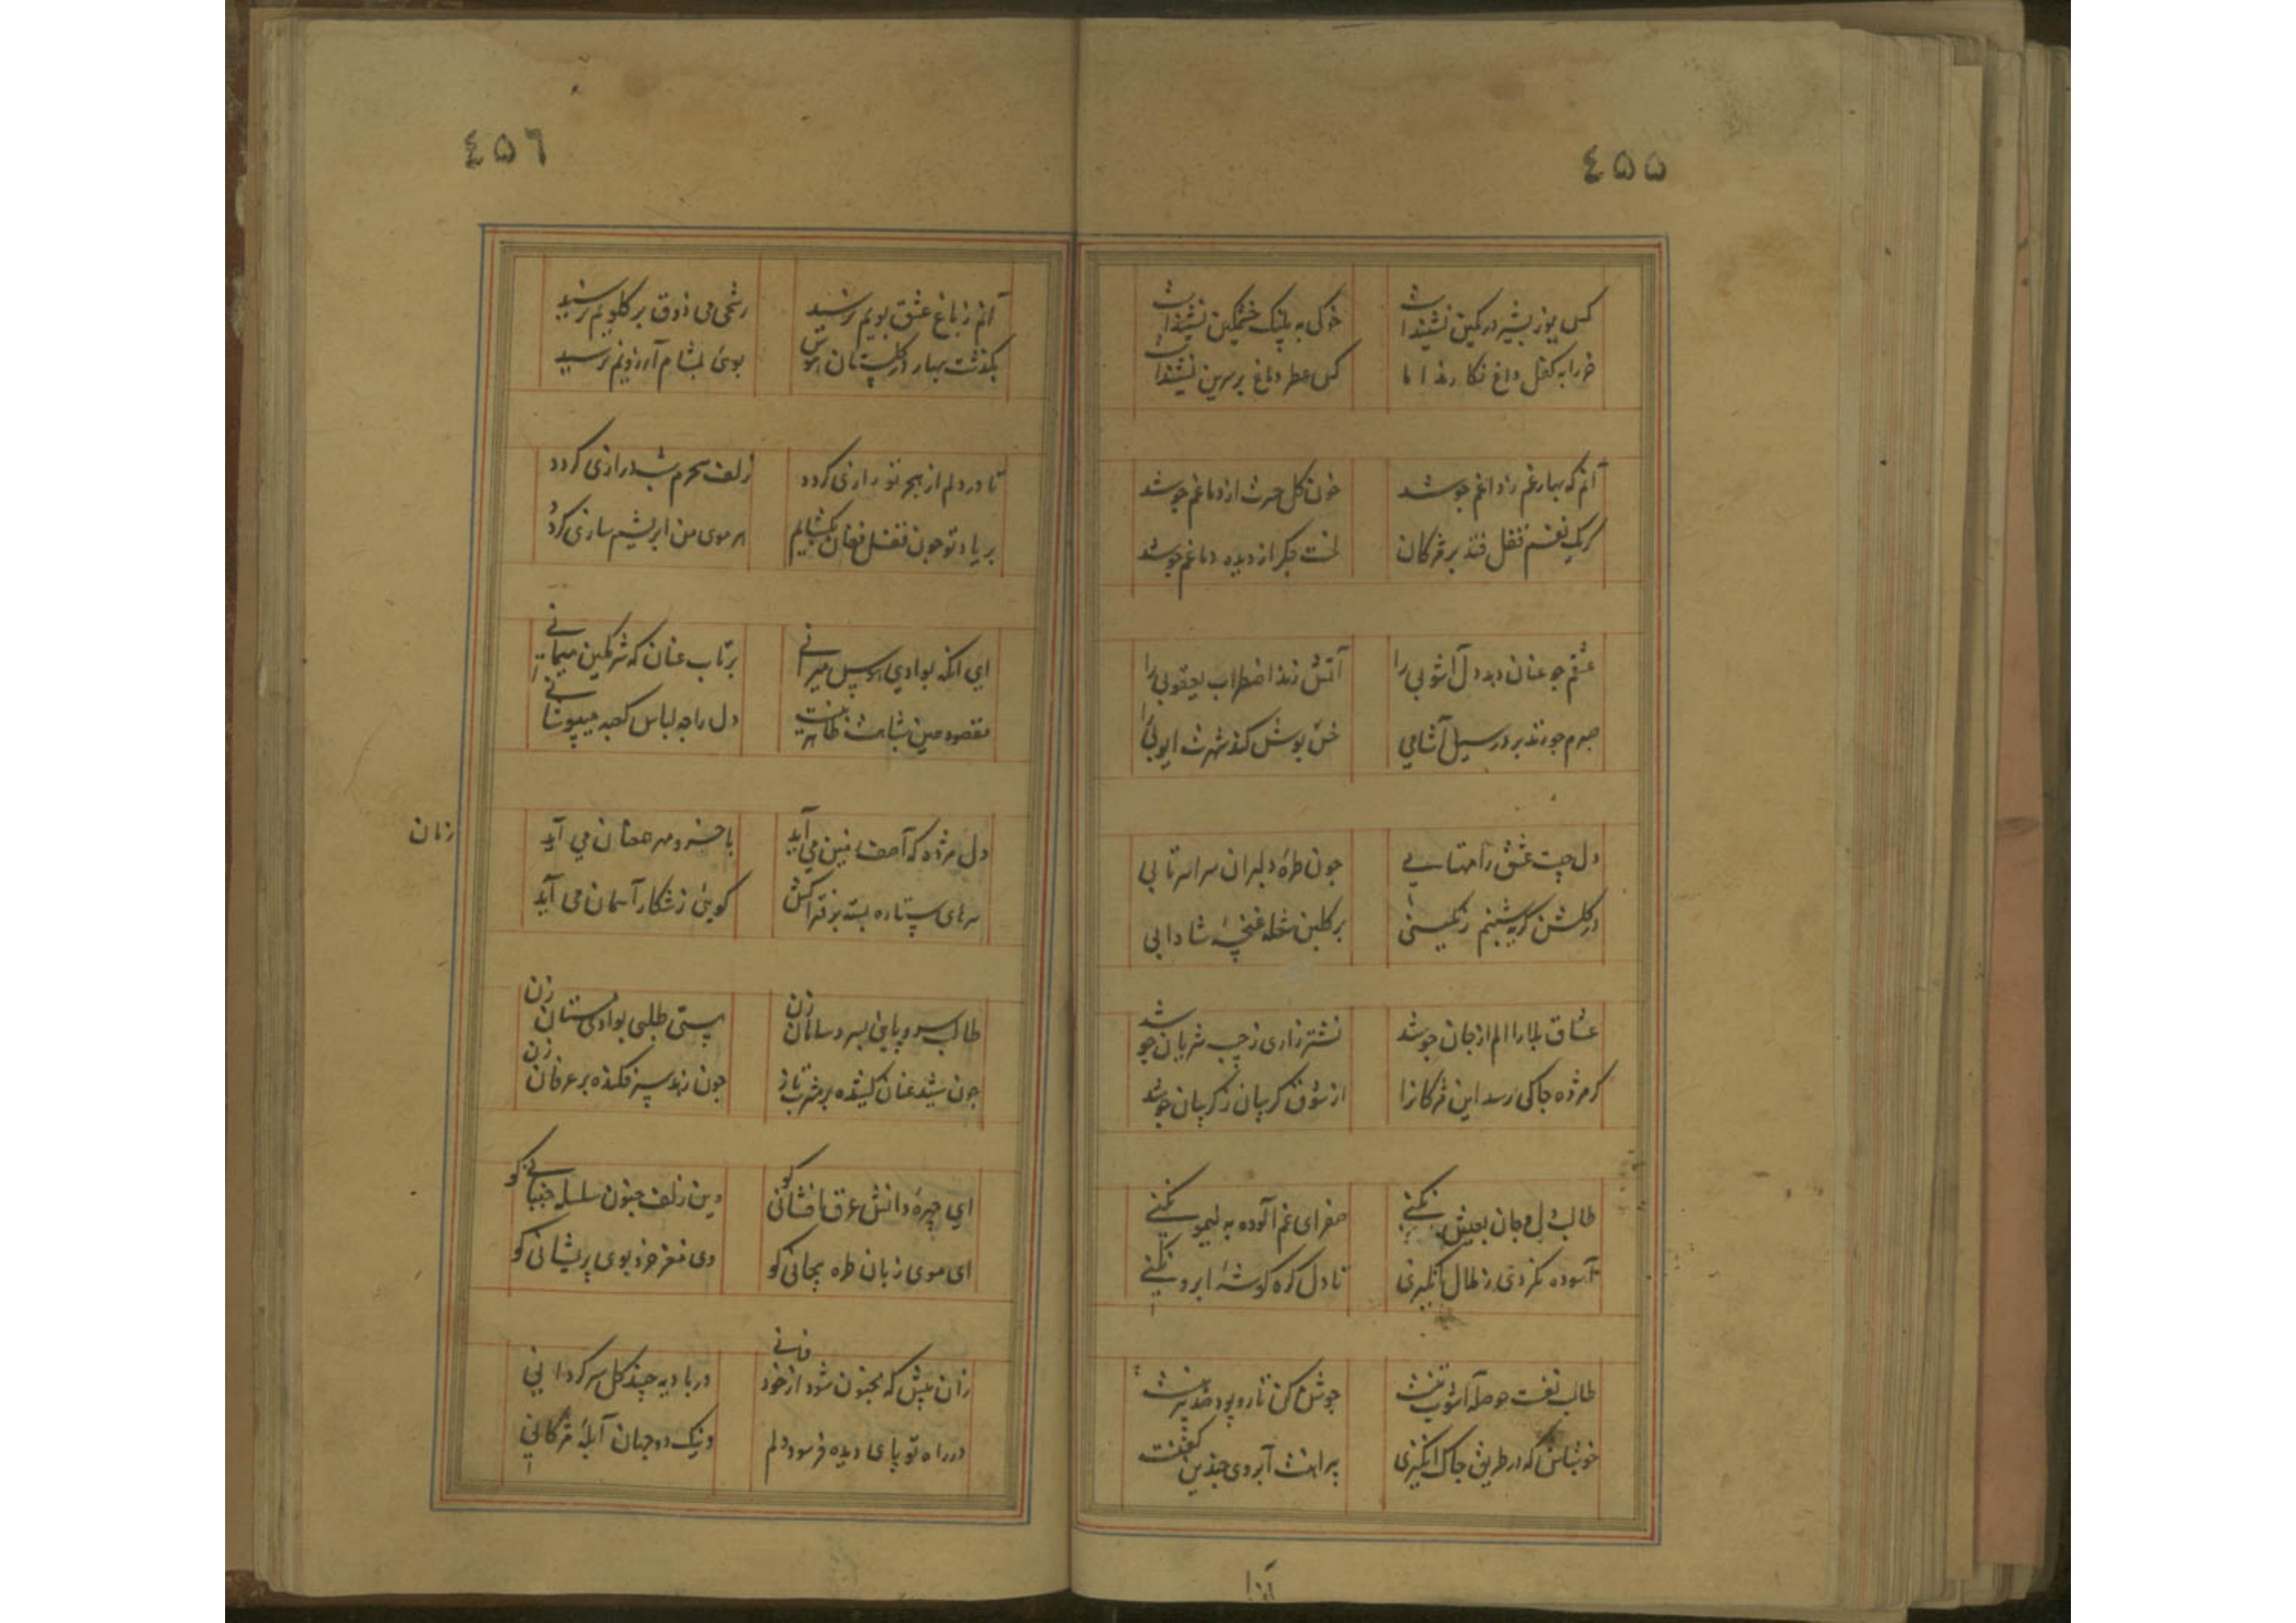 ٤٥٥
کس یوز بشیر در کمین نشیندا
خوکی به پلنک خشمکین نشیندا
خر را به کفل داغ نکارند اما
کس عطر دماغ بر سرین نشیندا
آنم که بهار غم ز داغم جوشد
خون کل حسرت از دماغم جوشد
کریک نفسم قفل فتد بر مژکان
لخت جکر از دیده دماغم جوشد
عشقم جو عنان دهد دل آشوبی را
آتش زند اضطراب یعقوبی را
صبرم جو زند بر در سیل آشامی
خس پوش کند شهرت ایوبی را
دل جیت عشق را مهتابی
جون طرهٔ دلبران سراسر تابی
در کلشن کریه شبنم رنکینی
بر کلبن شعله غنچهٔ شادابی
عشاق بلا را الم از جان جوشد
نشتر زاری ز جیب شریان جوشد
کر مژده جاکی رسد این مژکانرا
از شوق کریبان ز کریبان جوشد
طالب دل و جان بعیش نکنی
صفرای غم آلوده به لیمو نکنی
آسوده نکردی ز ظال انکیزی
تا دل کره کوشهٔ ابرو نکنی
طالب نفست حوصله آشوب
جوش کن تار و پود
خوشباش که در طریق جاک انکیزی
پیراهنت آبروی جندین کفنست
٤٥٦
آنم ز باغ عشق بویم نرسید
رشحی می ذوق بر کلویم نرسید
بکذشت بهار و ز کلستان هوس
بوئی بمشام آرزویم نرسید
تا در دلم از هجر تو رازی کردد
زلف سحرم شب درازی کردد
بر یاد تو جون قفل فغان بکشایم
هر موی من ابریشم سازی کردد
ای انکه بوادی هوس میرانی
برتاب عنان که شرمکین میمانی
مقصود مبین ظاهر نیست
دل را جه لباس کعبه میپوشانی
دل مژده که آصف زمین می آید
با خسرو مهر همعنان می آید
سرهای ستاره بسته بر فتراکش
کوئی ز شکار آسمان می آید
زمان
طالب سر و پایی بسر و سامان زن
پستی طلبی بوادی مستان زن
جون شید عنان کشیده بر مشرب تاز
جون زهد سپر فکنده بر عرفان زن
ای چهرهٔ دانش عرق افشانی کو
وین زلف جنون سلسله جنبانی کو
ای موی زبان طره بجانی کو
وی مغز خرد بوی پریشانی کو
زان پیش که مجنون شود از خود فانی
در بادیه چند کل سر کردانی
در راه تو پای دیده فرسود دلم
دینک دو جهان آبلهٔ مژکانی